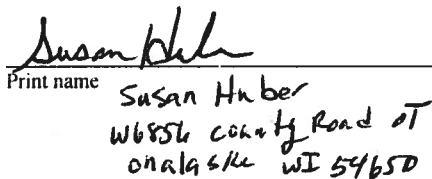 Susan Huber
Print name
Susan Huber
W6856 County Road OT
Onalaska WI 54650